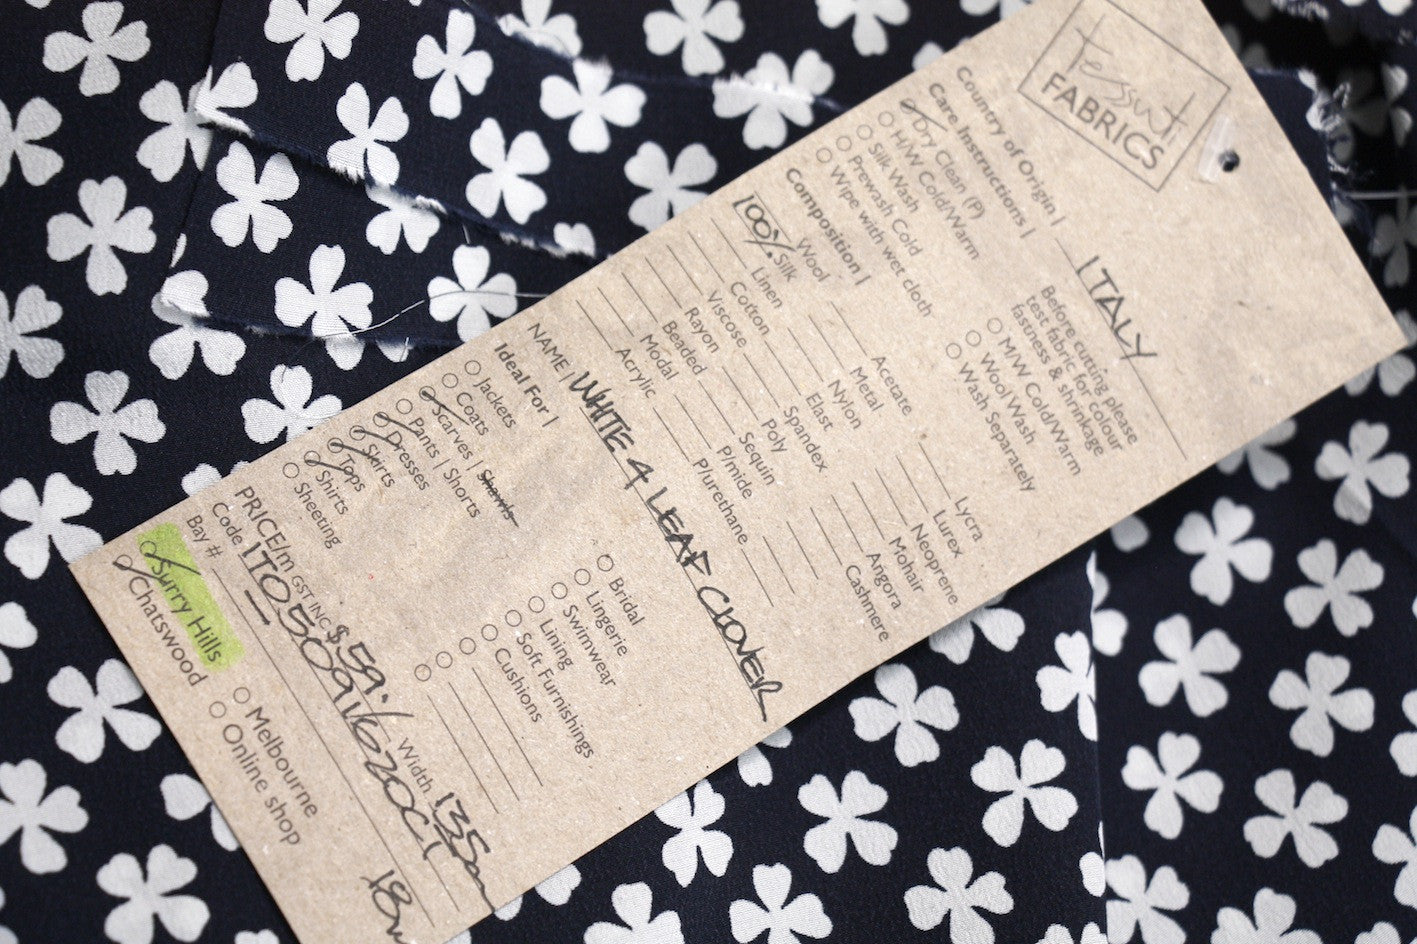 Tessuti
FABRICS
Country of Origin | ITALY
Care Instructions |
Dry Clean (P)
H/W Cold/Warm
Silk Wash
Prewash Cold
Wipe with wet cloth
Before cutting please
test fabric for colour
fastness & shrinkage
M/W Cold/Warm
Wool Wash
Wash Separately
Composition |
Wool
100% Silk
Linen
Cotton
Viscose
Rayon
Beaded
Modal
Acrylic
Acetate
Metal
Nylon
Elast
Spandex
Poly
Sequin
P/mide
P/urethane
Lycra
Lurex
Neoprene
Mohair
Angora
Cashmere
NAME | WHITE 4 LEAF CLOVER
Ideal For |
Jackets
Coats
Scarves | Shawls
Pants | Shorts
Dresses
Skirts
Tops
Shirts
Sheeting
Bridal
Lingerie
Swimwear
Lining
Soft Furnishings
Cushions
PRICE/m GST INC $59.
Width 135
Code
Bay #
Surry Hills
Chatswood
Melbourne
Online shop